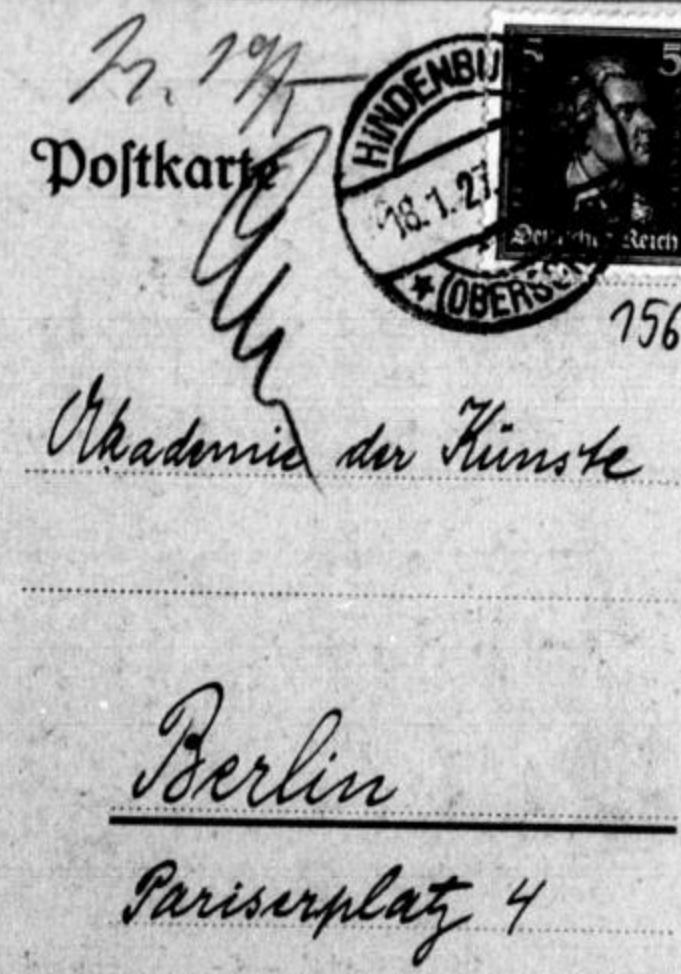 Postkarte
HINDENBU
18.1.27.
* (OBERSC
5 5
Deutsches Reich
156
Akademie der Künste
Berlin
Pariserplatz 4